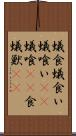 蟻食蟻食い
蟻食い
蟻喰食
蟻獣